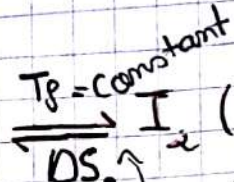 T8 = constant
⇌ I₂ (
DS ↑